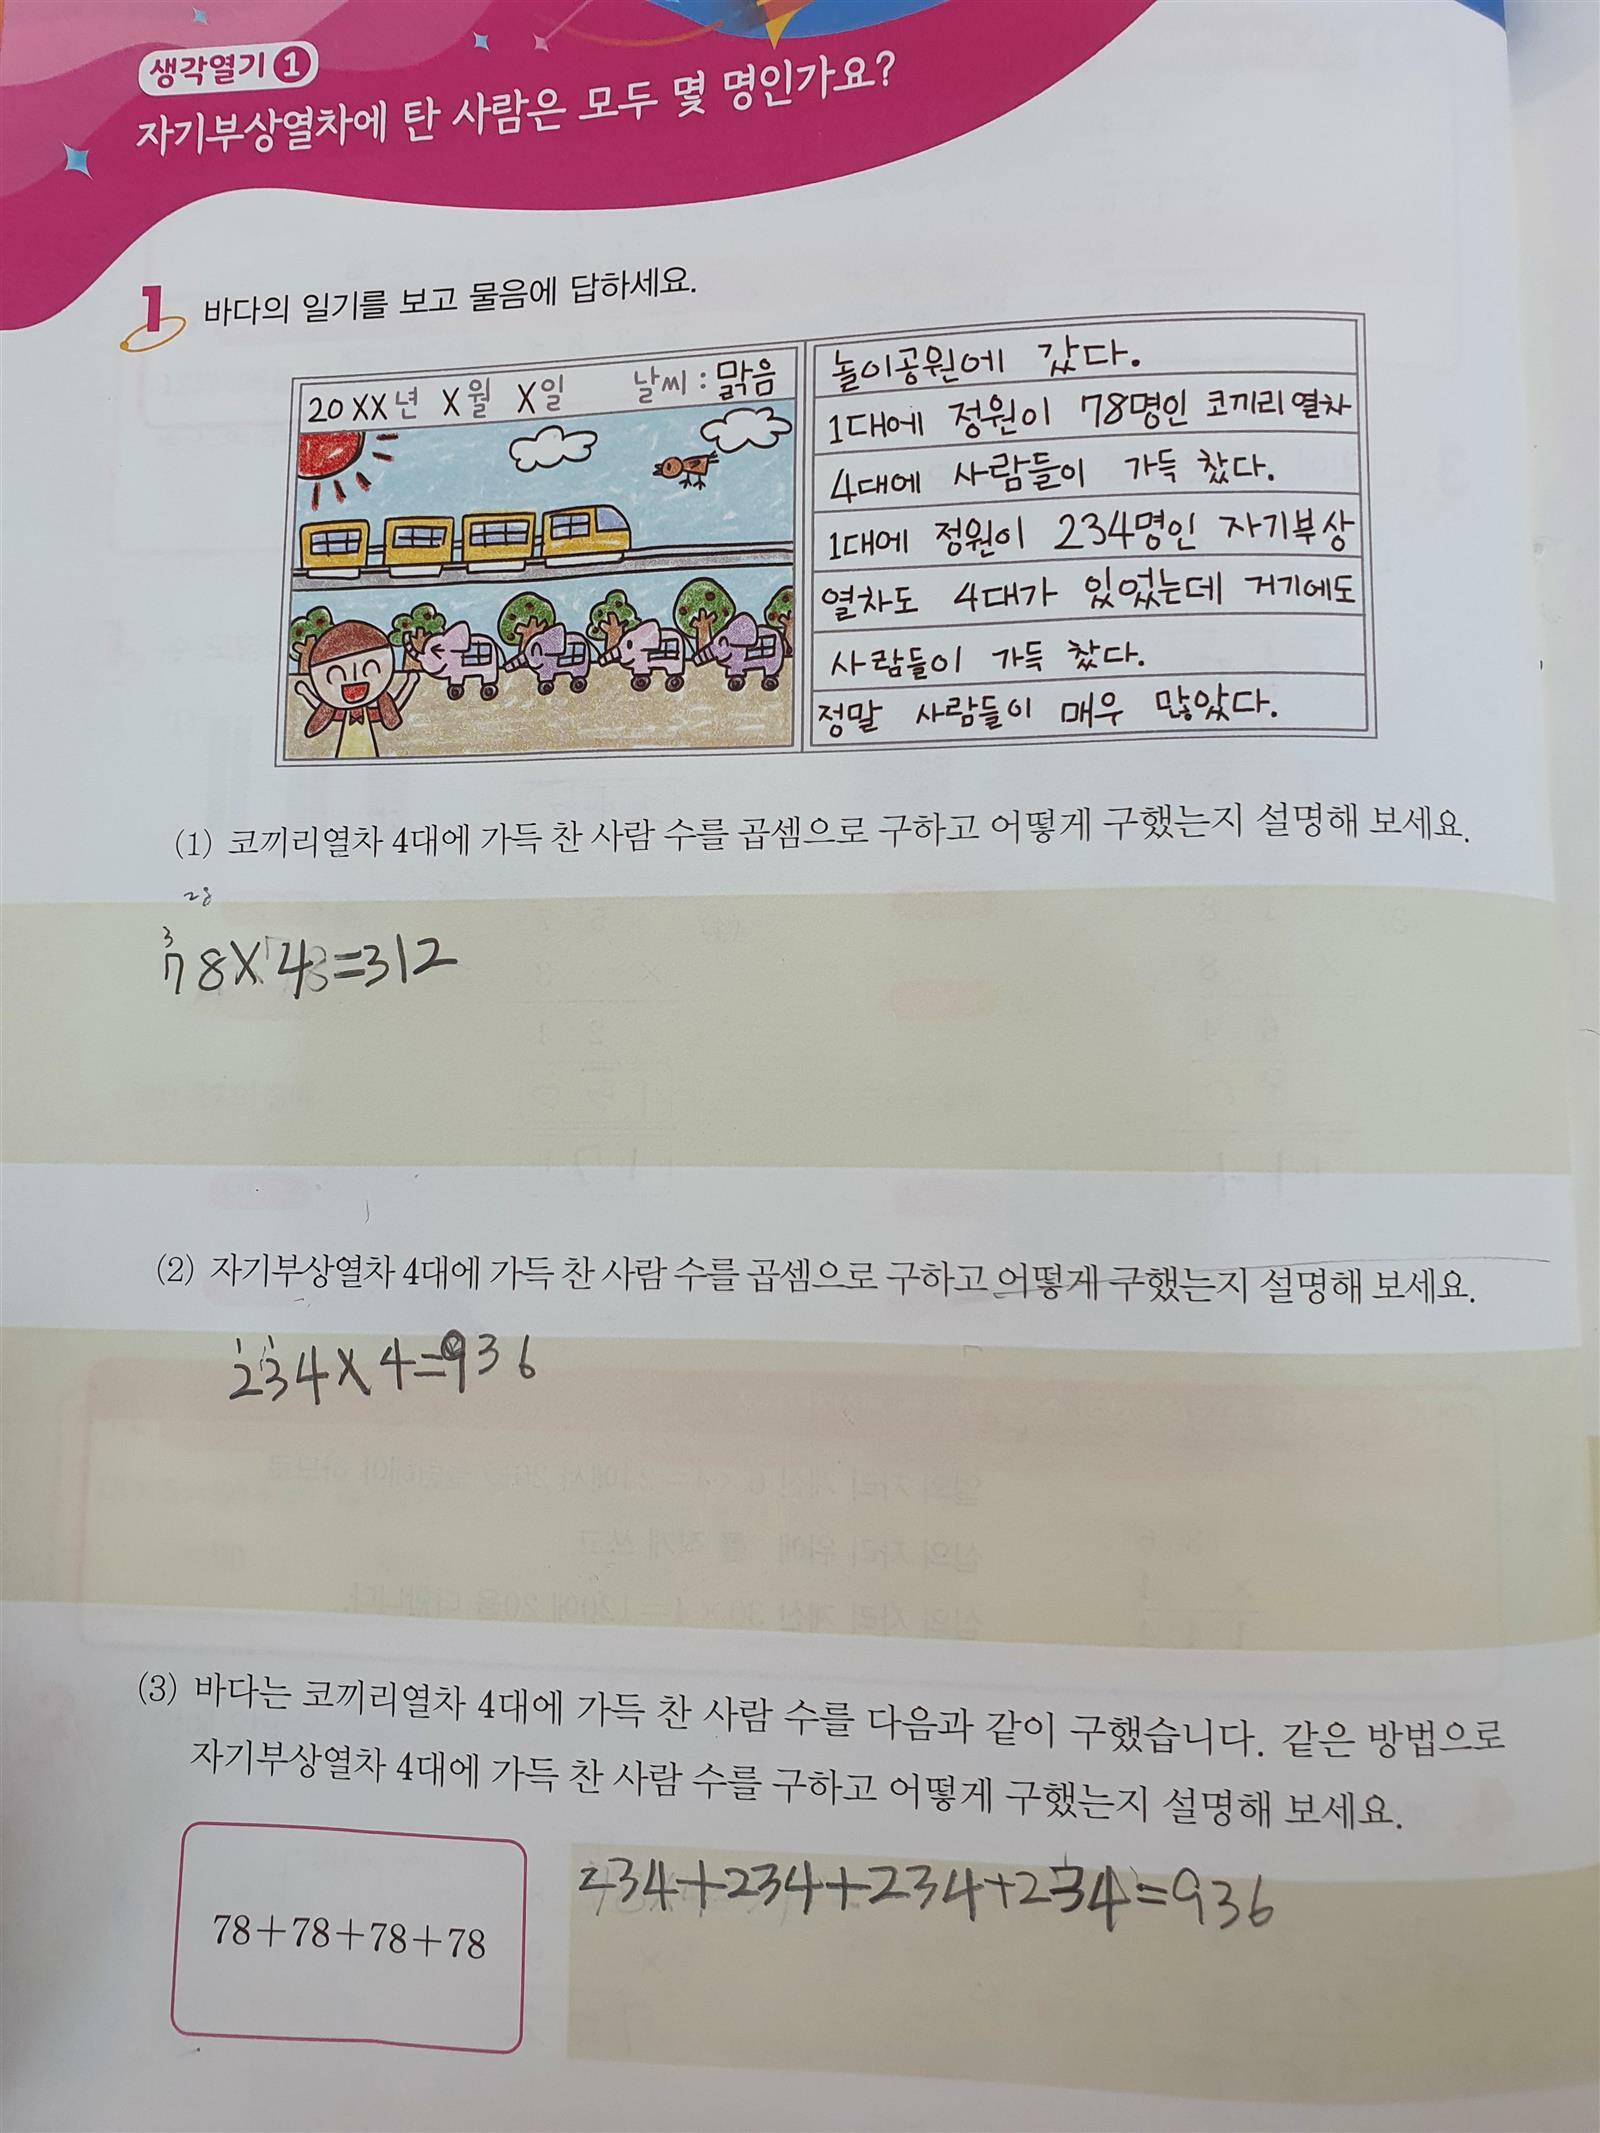 생각열기 1
자기부상열차에 탄 사람은 모두 몇 명인가요?
1 바다의 일기를 보고 물음에 답하세요.
20XX년 X월 X일 날씨 : 맑음
놀이공원에 갔다.
1대에 정원이 78명인 코끼리열차
4대에 사람들이 가득 찼다.
1대에 정원이 234명인 자기부상
열차도 4대가 있었는데 거기에도
사람들이 가득 찼다.
정말 사람들이 매우 많았다.
(1) 코끼리열차 4대에 가득 찬 사람 수를 곱셈으로 구하고 어떻게 구했는지 설명해 보세요.
28
3
78×4=312
(2) 자기부상열차 4대에 가득 찬 사람 수를 곱셈으로 구하고 어떻게 구했는지 설명해 보세요.
1 1
234×4=936
(3) 바다는 코끼리열차 4대에 가득 찬 사람 수를 다음과 같이 구했습니다. 같은 방법으로
자기부상열차 4대에 가득 찬 사람 수를 구하고 어떻게 구했는지 설명해 보세요.
78+78+78+78
234+234+234+234=936